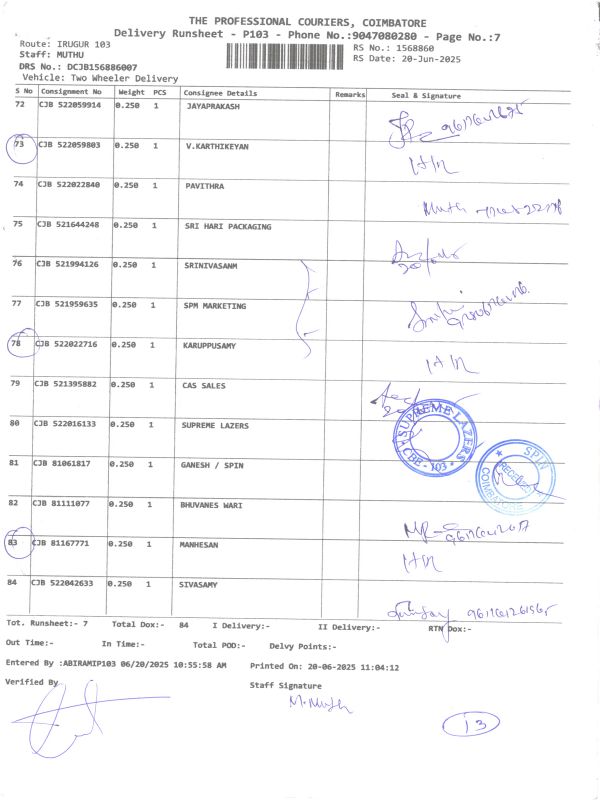 THE PROFESSIONAL COURIERS, COIMBATORE
Delivery Runsheet - P103 - Phone No.:9047080280 - Page No.:7
Route: IRUGUR 103
Staff: MUTHU
RS No.: 1568860
DRS No.: DCJB156886007
RS Date: 20-Jun-2025
Vehicle: Two Wheeler Delivery
S No Consignment No Weight PCS Consignee Details Remarks Seal & Signature
72 CJB 522059914 0.250 1 JAYAPRAKASH
73 CJB 522059803 0.250 1 V.KARTHIKEYAN
74 CJB 522022840 0.250 1 PAVITHRA
75 CJB 521644248 0.250 1 SRI HARI PACKAGING
76 CJB 521994126 0.250 1 SRINIVASANM
77 CJB 521959635 0.250 1 SPM MARKETING
78 CJB 522022716 0.250 1 KARUPPUSAMY
79 CJB 521395882 0.250 1 CAS SALES
80 CJB 522016133 0.250 1 SUPREME LAZERS
SUPREME LAZERS
CBE-103
81 CJB 81061817 0.250 1 GANESH / SPIN
SPIN
RECEIVED
COIMBATORE
82 CJB 81111077 0.250 1 BHUVANES WARI
83 CJB 81167771 0.250 1 MANHESAN
84 CJB 522042633 0.250 1 SIVASAMY
Tot. Runsheet:- 7 Total Dox:- 84 I Delivery:- II Delivery:- RTN Dox:-
Out Time:- In Time:- Total POD:- Delvy Points:-
Entered By :ABIRAMIP103 06/20/2025 10:55:58 AM Printed On: 20-06-2025 11:04:12
Verified By
Staff Signature
M. Muth
13